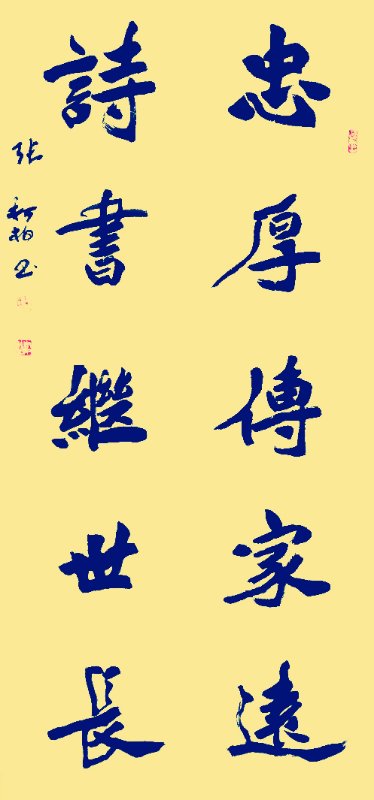 忠厚傳家遠
詩書繼世長
张
书